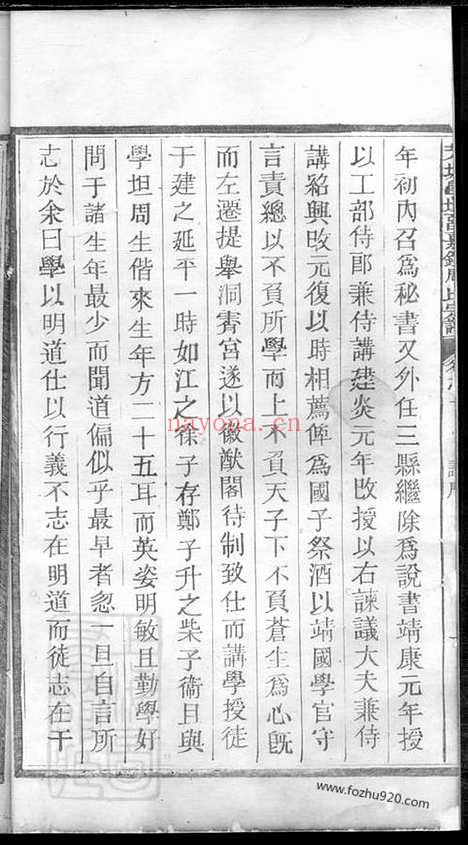 年初內召爲秘書又外任三縣繼除爲說書靖康元年授
以工部侍郎兼侍講建炎元年改授以右諫議大夫兼侍
講紹興改元復以時相薦俾爲國子祭酒以靖國學官守
言責總以不負所學而上不負天子下不負蒼生爲心旣
而左遷提舉洞霄宮遂以徽猷閣待制致仕而講學授徒
于建之延平一時如江之徐子存鄭子升之柴子衞且與
學坦周生偕來生年方二十五耳而英姿明敏且勤學好
問于諸生年最少而聞道偏似乎最早者忽一旦自言所
志於余曰學以明道仕以行義不志在明道而徒志在干
nayona.cn
www.fozhu920.com